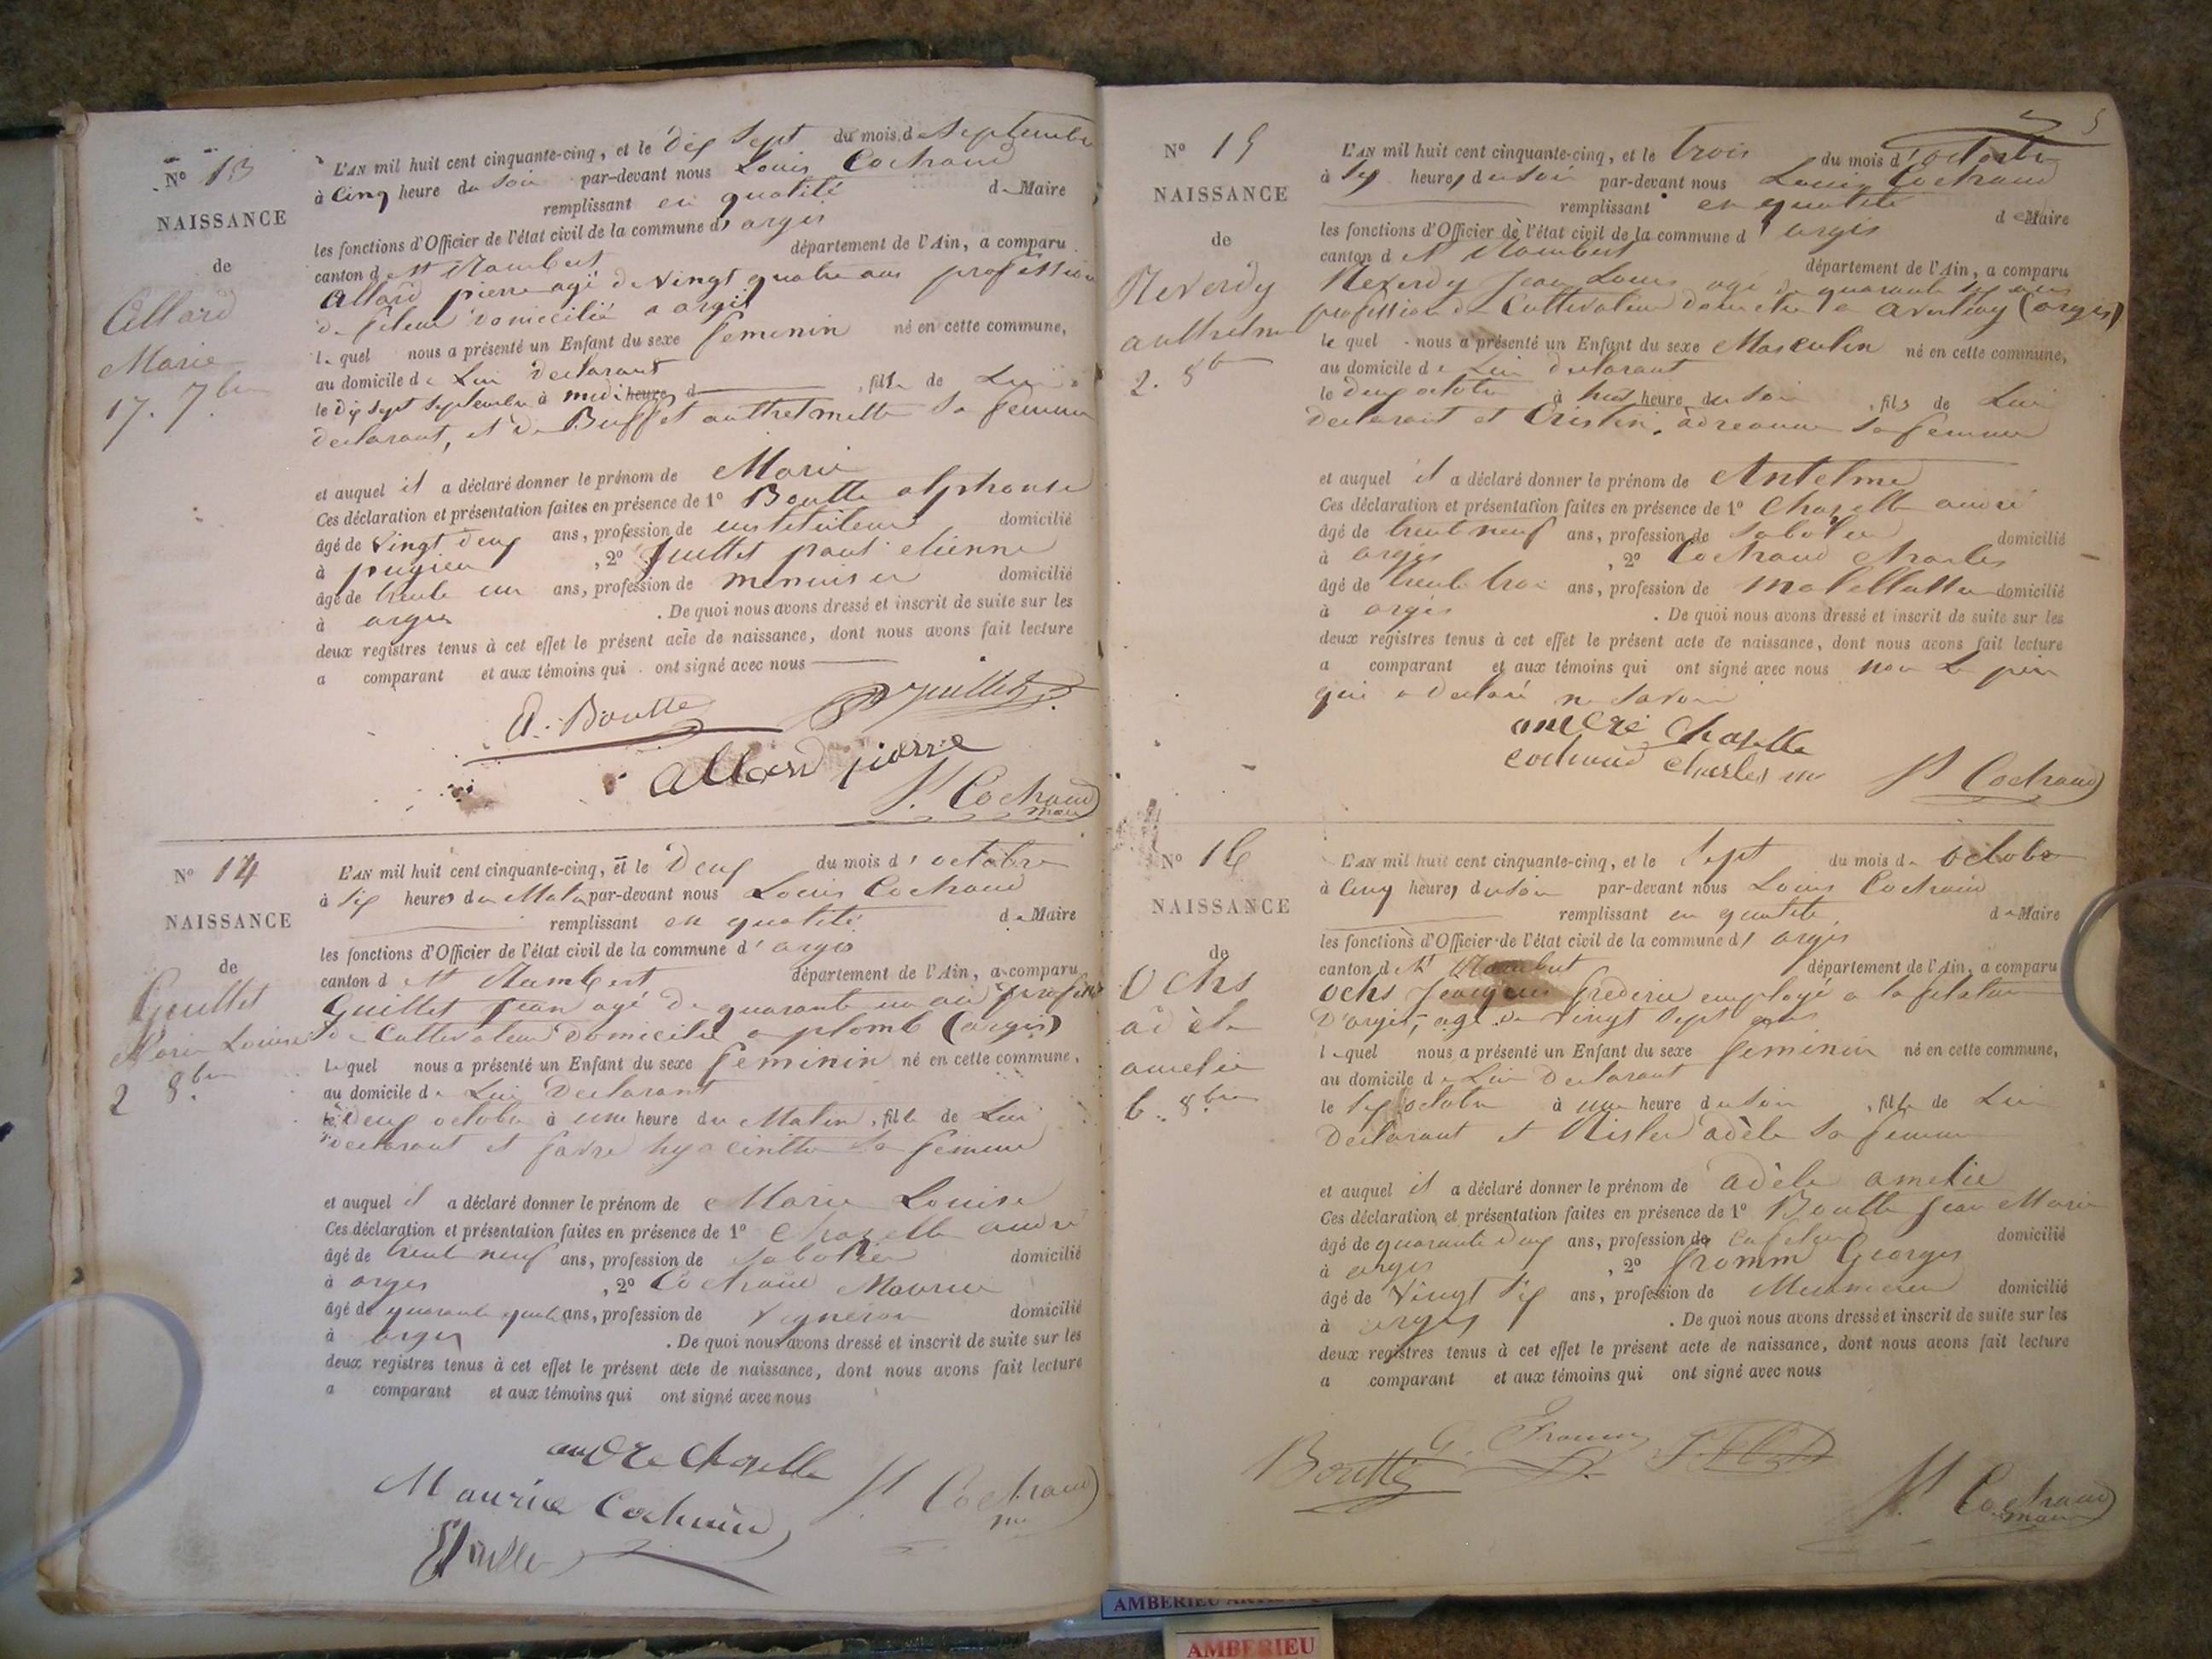 N° 13
NAISSANCE
de
Allard
Marie
17. 7bre
L'AN mil huit cent cinquante-cinq, et le dix sept du mois de Septembre
à cinq heure du soir par-devant nous Louis Cochaud
remplissant en qualité de Maire
les fonctions d'Officier de l'état civil de la commune d' argis
canton de St Rambert département de l'Ain, a comparu
Allard pierre agé de vingt quatre ans profession
de fileur domicilié a argis
lequel nous a présenté un Enfant du sexe feminin né en cette commune,
au domicile de Lui declarant
le dix sept Septembre à midi heures d , fille de Lui
declarant, et de Buffet anthelmette sa femme
et auquel il a déclaré donner le prénom de Marie
Ces déclaration et présentation faites en présence de 1° Boutte alphonse
âgé de vingt deux ans, profession de instituteur domicilié
à pugieu , 2° Juillet paul etienne
âgé de trente un ans, profession de menuisier domicilié
à argis . De quoi nous avons dressé et inscrit de suite sur les
deux registres tenus à cet effet le présent acte de naissance, dont nous avons fait lecture
a comparant et aux témoins qui ont signé avec nous
A. Boutte Juillet
allard pierre
Lt Cochaud
maire
N° 14
NAISSANCE
de
Guillet
Marie Louise
2 8bre
L'AN mil huit cent cinquante-cinq, et le deux du mois d' octobre
à six heures du Matin par-devant nous Louis Cochaud
remplissant en qualité de Maire
les fonctions d'Officier de l'état civil de la commune d' argis
canton d St Rambert département de l'Ain, a comparu
Guillet jean agé de quarante un an profession
de Cultivateur domicilié a plomb (argis)
lequel nous a présenté un Enfant du sexe feminin né en cette commune,
au domicile de Lui declarant
le deux octobre à une heure du Matin, fille de Lui
declarant et favre hyacinthe sa femme
et auquel il a déclaré donner le prénom de Marie Louise
Ces déclaration et présentation faites en présence de 1° Chapelle andre
âgé de trente neuf ans, profession de sabotier domicilié
à argis , 2° Cochaud Maurice
âgé de quarante quatre ans, profession de vigneron domicilié
à argis . De quoi nous avons dressé et inscrit de suite sur les
deux registres tenus à cet effet le présent acte de naissance, dont nous avons fait lecture
a comparant et aux témoins qui ont signé avec nous
andre chapelle
Maurice Cochaud Lt Cochaud
5
N° 15
NAISSANCE
de
Reverdy
anthelme
2. 8b
L'AN mil huit cent cinquante-cinq, et le trois du mois d' octobre
à six heures du soir par-devant nous Louis Cochaud
remplissant en qualité de Maire
les fonctions d'Officier de l'état civil de la commune d' argis
canton d St Rambert département de l'Ain, a comparu
Reverdy jean Louis agé de quarante six ans
profession de Cultivateur domicilié a (argis)
lequel nous a présenté un Enfant du sexe Masculin né en cette commune,
au domicile de Lui declarant
le deux octobre à huit heure du soir , fils de Lui
declarant et sa femme
et auquel il a déclaré donner le prénom de Antelme
Ces déclaration et présentation faites en présence de 1° Chapelle andré
âgé de trente neuf ans, profession de sabotier domicilié
à argis , 2° Cochaud Charles
âgé de trente trois ans, profession de domicilié
à argis . De quoi nous avons dressé et inscrit de suite sur les
deux registres tenus à cet effet le présent acte de naissance, dont nous avons fait lecture
a comparant et aux témoins qui ont signé avec nous non le père
qui a declaré ne savoir
andre chapelle
cochaud charles Lt Cochaud
N° 16
NAISSANCE
de
Ochs
adèle
amelie
6. 8bre
L'AN mil huit cent cinquante-cinq, et le sept du mois de octobre
à cinq heures du soir par-devant nous Louis Cochaud
remplissant en qualité de Maire
les fonctions d'Officier de l'état civil de la commune d' argis
canton d St Rambert département de l'Ain, a comparu
Ochs jacques frederic employé a la filature
d'argis, agé de vingt sept ans
lequel nous a présenté un Enfant du sexe feminin né en cette commune,
au domicile de Lui declarant
le six octobre à une heure du soir , fille de Lui
declarant et Risler adèle sa femme
et auquel il a déclaré donner le prénom de adèle amelie
Ces déclaration et présentation faites en présence de 1° Boutte jean Marie
âgé de quarante deux ans, profession de domicilié
à argis , 2° fromm Georges
âgé de vingt six ans, profession de Mecanicien domicilié
à argis . De quoi nous avons dressé et inscrit de suite sur les
deux registres tenus à cet effet le présent acte de naissance, dont nous avons fait lecture
a comparant et aux témoins qui ont signé avec nous
Boutte G. Fromm
Lt Cochaud
maire
AMBERIEU
AMBERIEU